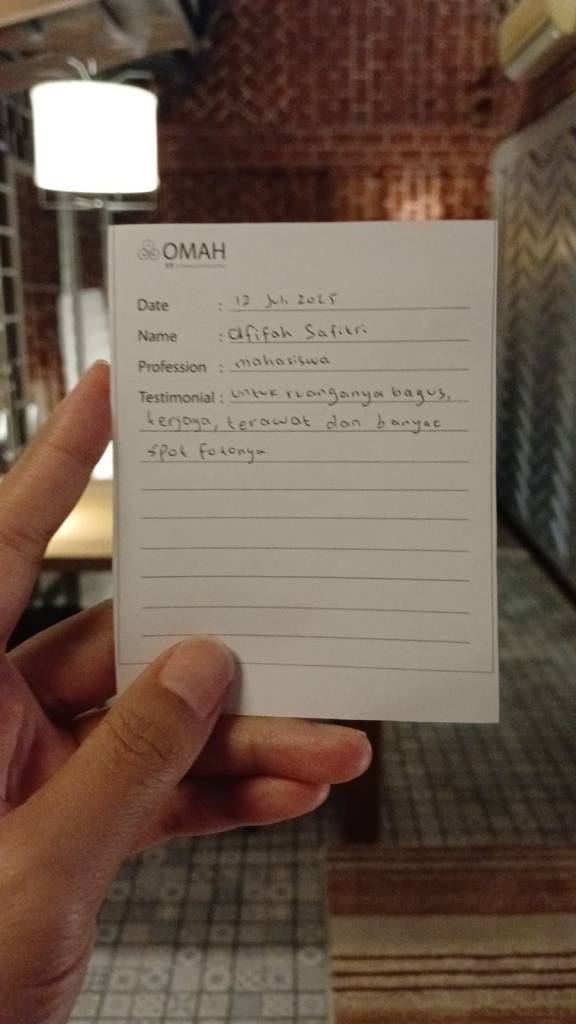 OMAH
Date : 12 Juli 2025
Name : Afifah Safitri
Profession : mahasiswa
Testimonial : untuk ruanganya bagus,
terjaga, terawat dan banyak
spot fotonya